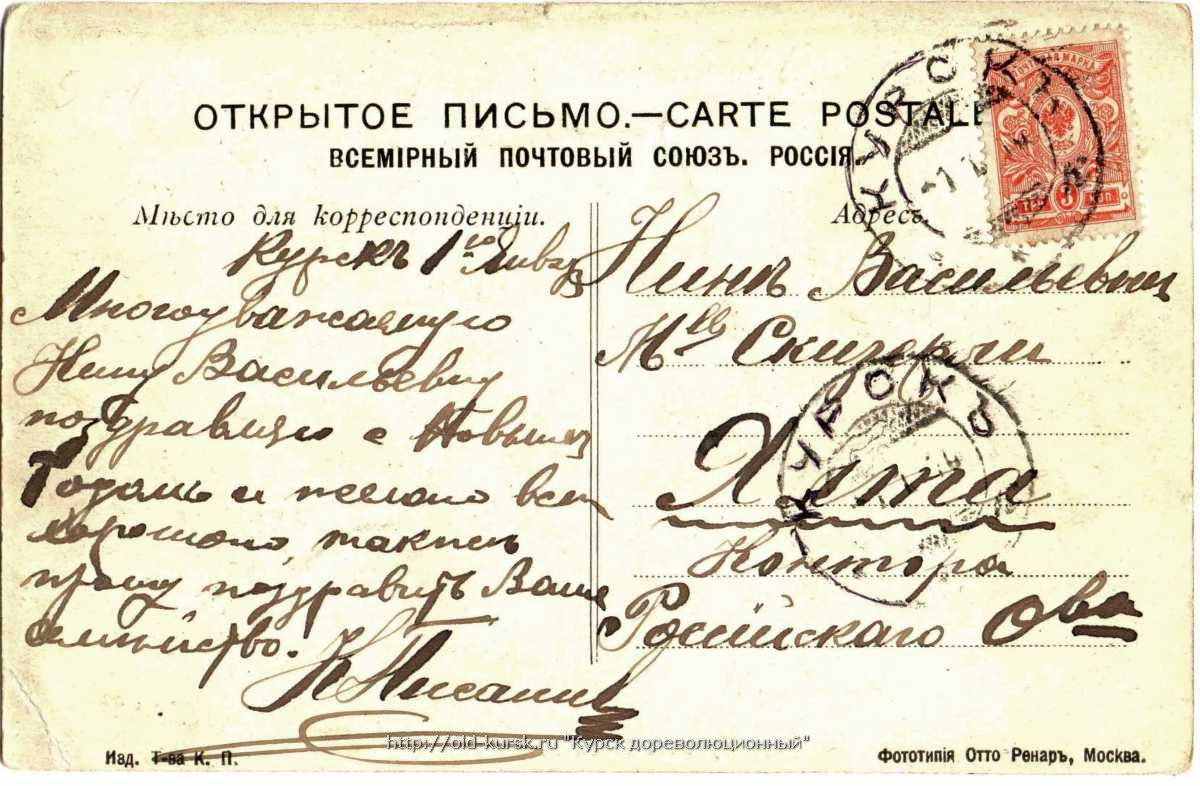 ОТКРЫТОЕ ПИСЬМО.—CARTE POSTALE
ВСЕМІРНЫЙ ПОЧТОВЫЙ СОЮЗЪ. РОССІЯ.
Мѣсто для корреспонденціи.
Курскъ 1го Января
Многоуважаемую
Нину Васильевну
поздравляю с Новымъ
Годомъ и желаю всего
хорошаго, также
прошу поздравить Ваше
семейство.
Адресъ
Нинѣ Васильевнѣ
Mlle
Ялта
Контора
Россійскаго Ова
КУРСКЪ
КУРСКЪ
3
Изд. Т-ва К. П.
http://old-kursk.ru "Курск дореволюционный"
Фототипія Отто Ренаръ, Москва.